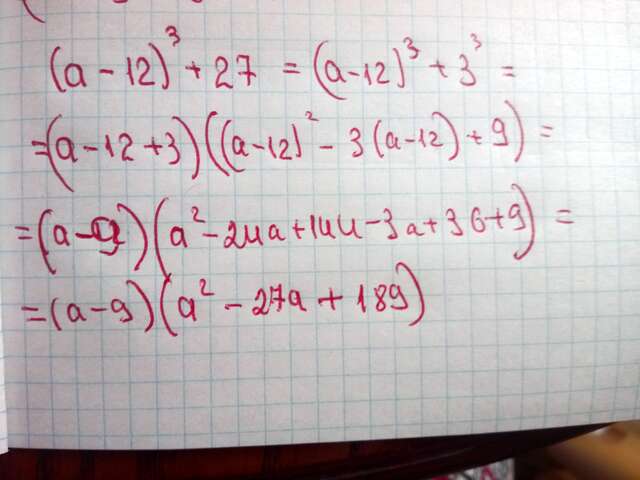 (a - 12)³ + 27 = (a - 12)³ + 3³ =
= (a - 12 + 3) ((a - 12)² - 3(a - 12) + 9) =
= (a - 9) (a² - 24a + 144 - 3a + 36 + 9) =
= (a - 9) (a² - 27a + 189)